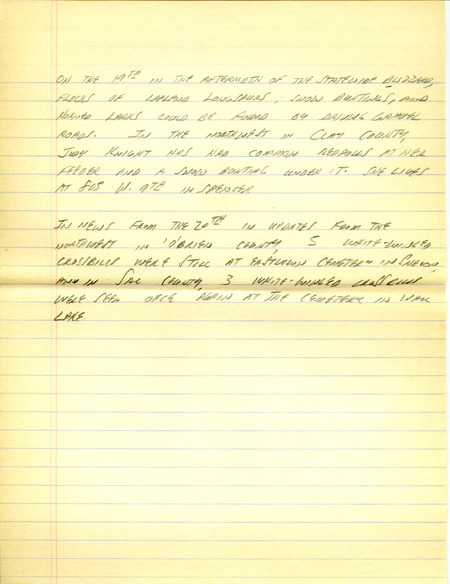 ON THE 19TH IN THE AFTERMATH OF THE STATEWIDE BLIZZARD,
FLOCKS OF LAPLAND LONGSPURS, SNOW BUNTINGS, AND
HORNED LARKS COULD BE FOUND BY DRIVING GRAVEL
ROADS. IN THE NORTHWEST IN CLAY COUNTY,
JUDY KNIGHT HAS HAD COMMON REDPOLLS AT HER
FEEDER AND A SNOW BUNTING UNDER IT. SHE LIVES
AT 805 W. 9TH IN SPENCER
IN NEWS FROM THE 20TH IN UPDATES FROM THE
NORTHWEST IN O'BRIEN COUNTY, 5 WHITE-WINGED
CROSSBILLS WERE STILL AT EASTLAWN CEMETERY IN SHELDON,
AND IN SAC COUNTY, 3 WHITE-WINGED CROSSBILLS
WERE SEEN ONCE AGAIN AT THE CEMETERY IN WALL
LAKE